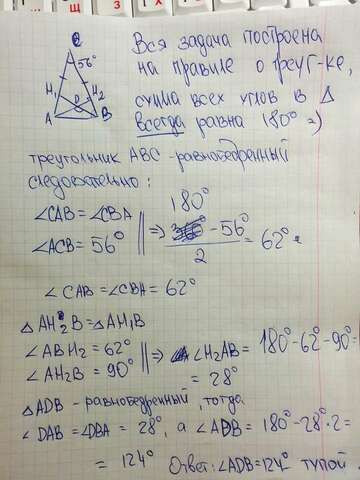 C
56°
H₁
H₂
D
A
B
Вся задача построена
на правиле о треуг-ке,
сумма всех углов в △
всегда равна 180° ⇒)
треугольник ABC - равнобедренный
следовательно:
∠CAB = ∠CBA
∠ACB = 56°
⇒ (180° - 56°) / 2 = 62°
∠CAB = ∠CBA = 62°
△AH₂B = △AH₁B
∠ABH₂ = 62°
∠AH₂B = 90°
⇒ ∠H₂AB = 180° - 62° - 90° =
= 28°
△ADB - равнобедренный, тогда
∠DAB = ∠DBA = 28°, а ∠ADB = 180° - 28° · 2 =
= 124° Ответ: ∠ADB = 124° тупой